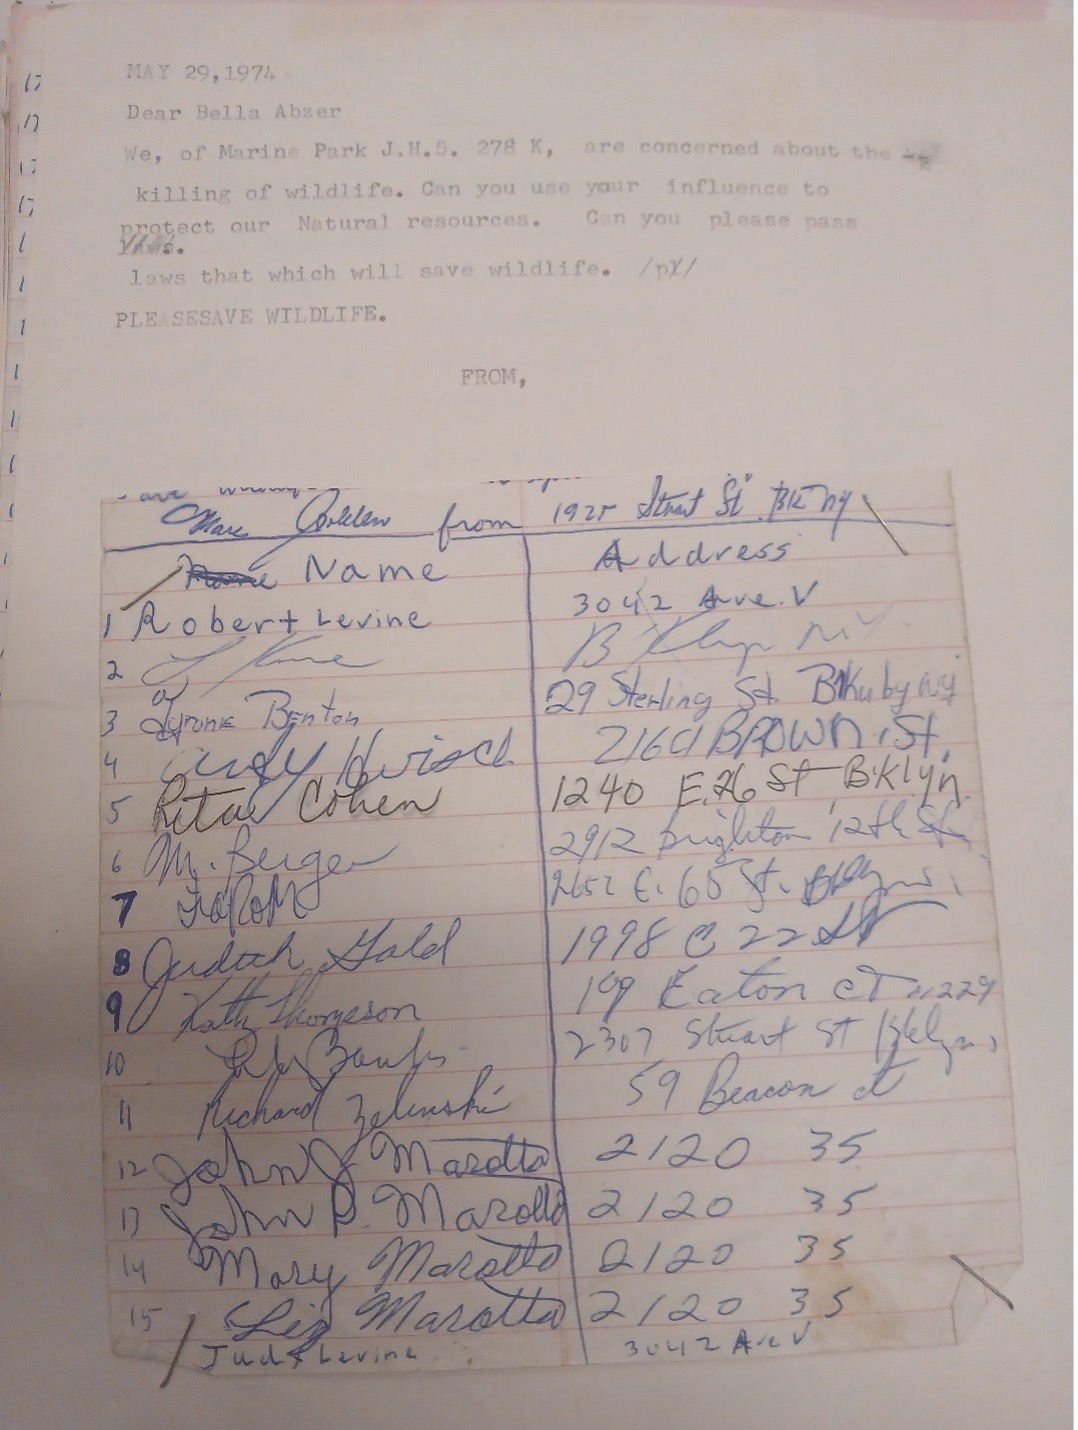 MAY 29,1974
Dear Bella Abzer
We, of Marine Park J.H.S. 278 K, are concerned about the
killing of wildlife. Can you use your influence to
protect our Natural resources. Can you please pass
laws that which will save wildlife. /pX/
PLEASESAVE WILDLIFE.
FROM,
Marc from 1925 Stuart St Bk ny
Name Address
1 Robert Levine 3042 Ave. V
2 Bklyn N.Y.
3 Tyrone Benton 29 Sterling St.
4 Hirsch 2169 BROWN St.
5 Rita Cohen 1240 E. 26 St Bklyn
6 M. Berger 2912 Brighton 12th St.
7 2652 E. 65 St.
8 Judith Gold 1998 E 22 St
9 Kathy Thompson 19 Eaton CT 11229
10 Banks 2307 Stuart St Bklyn
11 Richard Zelinski 59 Beacon ct
12 John J Marotta 2120 35
13 John P. Marotta 2120 35
14 Mary Marotta 2120 35
15 Liz Marotta 2120 35
Judy Levine 3042 Ave V